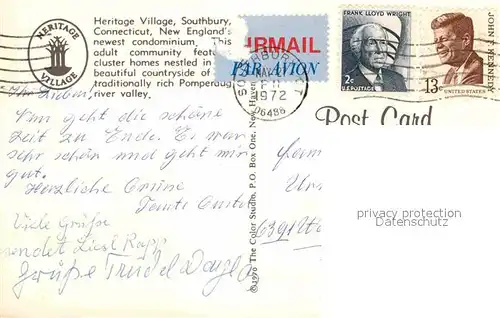 HERITAGE VILLAGE
Heritage Village, Southbury,
Connecticut, New England's
newest condominium. This
adult community
cluster homes nestled in
beautiful countryside of
traditionally rich Pomperaug
river valley.
IRMAIL
PAR AVION
1972
06488
FRANK LLOYD WRIGHT
2c
U.S. POSTAGE
JOHN KENNEDY
13c
UNITED STATES
Post Card
Ihr Lieben!
Nun geht die schöne
Zeit zu Ende. Es war
sehr schön und geht mir
gut.
Herzliche Grüße
Tante
Viele Grüße
sendet Liesl Rapp
Grüße Trudel
©1970 The Color Studio, P.O. Box One, New Haven
6391
privacy protection
Datenschutz